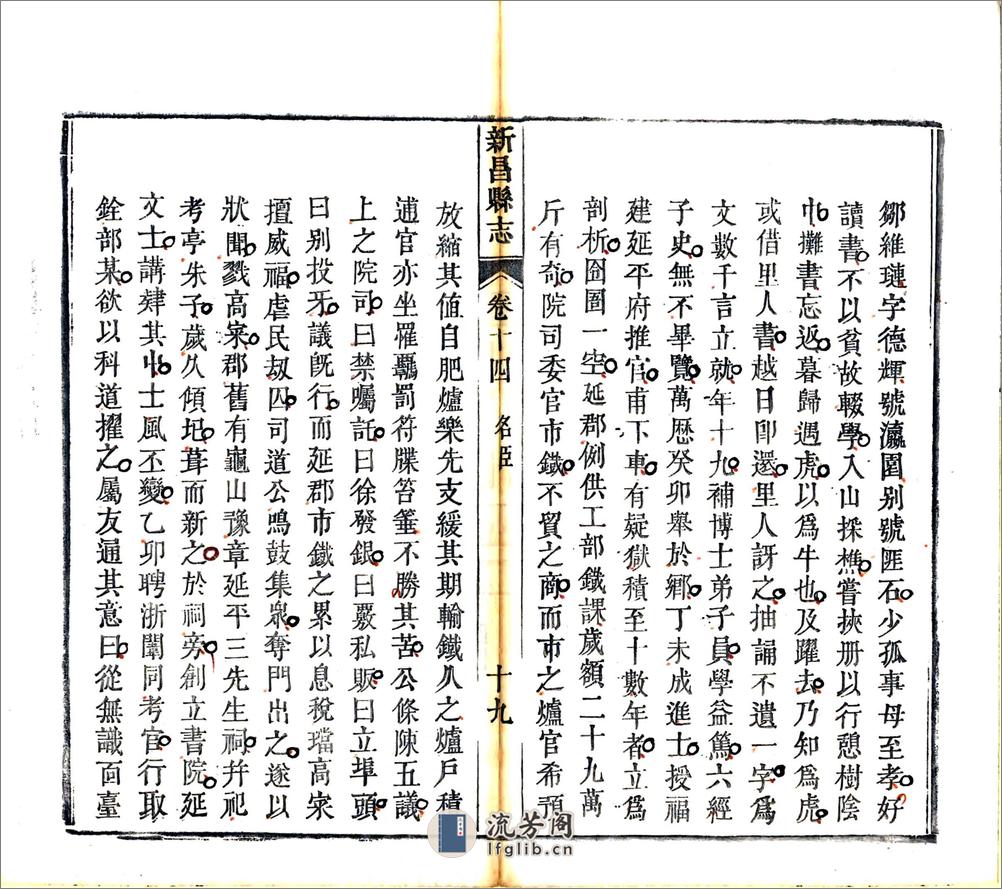 鄒維璉字德輝號瀛園别號匪石少孤事母至孝好
讀書不以貧故輟學入山採樵嘗挾册以行憩樹陰
中攤書忘返暮歸遇虎以爲牛也及躍去乃知爲虎
或借里人書越日卽還里人訝之抽誦不遺一字爲
文數千言立就年十九補博士弟子員學益篤六經
子史無不畢覽萬歷癸卯舉於鄉丁未成進士授福
建延平府推官甫下車有疑獄積至十數年者立爲
剖析囹圄一空延郡例供工部鐵課歲額二十九萬
斤有奇院司委官市鐵不貿之商而市之爐官希頭
新昌縣志
卷十四
名臣
十九
放縮其值自肥爐樂先支緩其期輸鐵久之爐戶積
逋官亦坐罹羈罰符牒笞箠不勝其苦公條陳五議
上之院司曰禁囑託曰徐發銀曰覈私販曰立埠頭
曰别投牙議旣行而延郡市鐵之累以息稅璫高寀
擅威福虐民刼囚司道公鳴鼓集衆奪門出之遂以
狀聞戮高寀郡舊有龜山豫章延平三先生祠幷祀
考亭朱子歲久傾圮葺而新之於祠旁創立書院延
文士講肄其中士風丕變乙卯聘浙闈同考官行取
銓部某欲以科道擢之屬友通其意曰從無識面臺
流芳阁
lfglib.cn